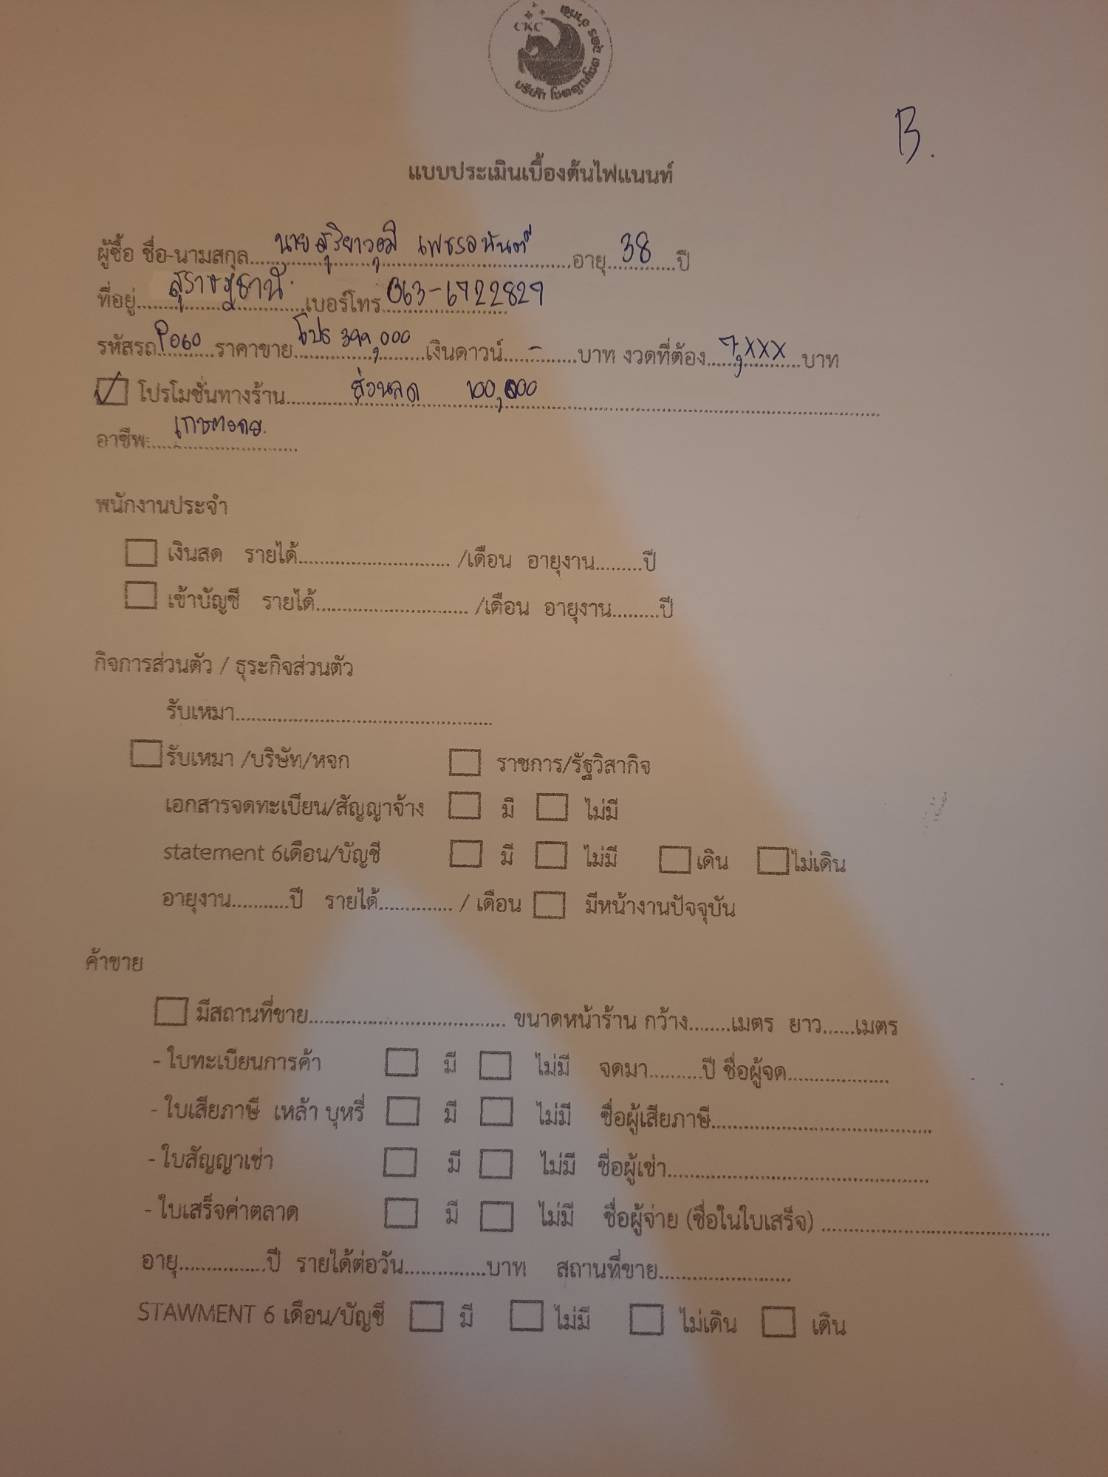 CKC
บริษัท โชคคูณโชค คาร์ จำกัด
B.
แบบประเมินเบื้องต้นไฟแนนท์
ผู้ซื้อ ชื่อ-นามสกุล นาย สุริยาวุฒิ เพชรอนันต์ อายุ 38 ปี
ที่อยู่ สุราษฎร์ธานี เบอร์โทร 063-6722829
รหัสรถ P060 ราคาขาย โปร 399,000 เงินดาวน์ - บาท งวดที่ต้อง 7,xxx บาท
โปรโมชั่นทางร้าน ส่วนลด 100,000
อาชีพ: เกษตรกร
พนักงานประจำ
เงินสด รายได้ /เดือน อายุงาน ปี
เข้าบัญชี รายได้ /เดือน อายุงาน ปี
กิจการส่วนตัว / ธุระกิจส่วนตัว
รับเหมา
รับเหมา /บริษัท/หจก ราชการ/รัฐวิสากิจ
เอกสารจดทะเบียน/สัญญาจ้าง มี ไม่มี
statement 6เดือน/บัญชี มี ไม่มี เดิน ไม่เดิน
อายุงาน ปี รายได้ / เดือน มีหน้างานปัจจุบัน
ค้าขาย
มีสถานที่ขาย ขนาดหน้าร้าน กว้าง เมตร ยาว เมตร
- ใบทะเบียนการค้า มี ไม่มี จดมา ปี ชื่อผู้จด
- ใบเสียภาษี เหล้า บุหรี่ มี ไม่มี ชื่อผู้เสียภาษี
- ใบสัญญาเช่า มี ไม่มี ชื่อผู้เช่า
- ใบเสร็จค่าตลาด มี ไม่มี ชื่อผู้จ่าย (ชื่อในใบเสร็จ)
อายุ ปี รายได้ต่อวัน บาท สถานที่ขาย
STAWMENT 6 เดือน/บัญชี มี ไม่มี ไม่เดิน เดิน